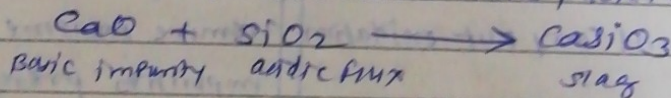 CaO + SiO2 ⟶ CaSiO3
Basic impurity acidic flux slag